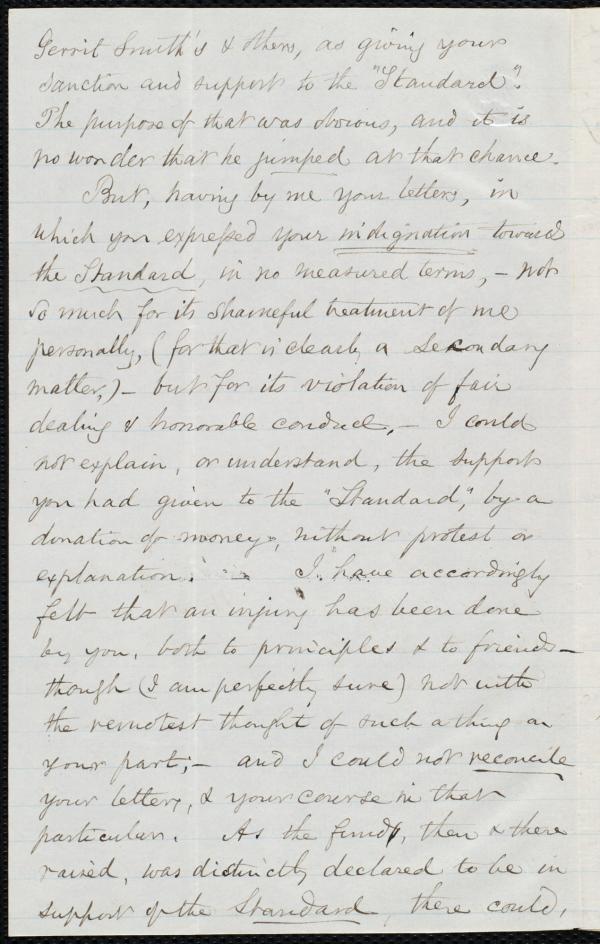 Gerrit Smith's & others, as giving your
sanction and support to the "Standard".
The purpose of that was obvious, and it is
no wonder that he jumped at that chance.
But, having by me your letters, in
which you expressed your indignation toward
the Standard, in no measured terms, - not
so much for its shameful treatment of me
personally, (for that is clearly a secondary
matter,) - but for its violation of fair
dealing & honorable conduct, - I could
not explain, or understand, the support
you had given to the "Standard", by a
donation of money, without protest or
explanation. - I have accordingly
felt that an injury has been done
by you, both to principles & to friends -
though (I am perfectly sure) not with
the remotest thought of such a thing on
your part; - and I could not reconcile
your letters, & your course in that
particular. As the fund, then & there
raised, was distinctly declared to be in
support of the Standard, there could,